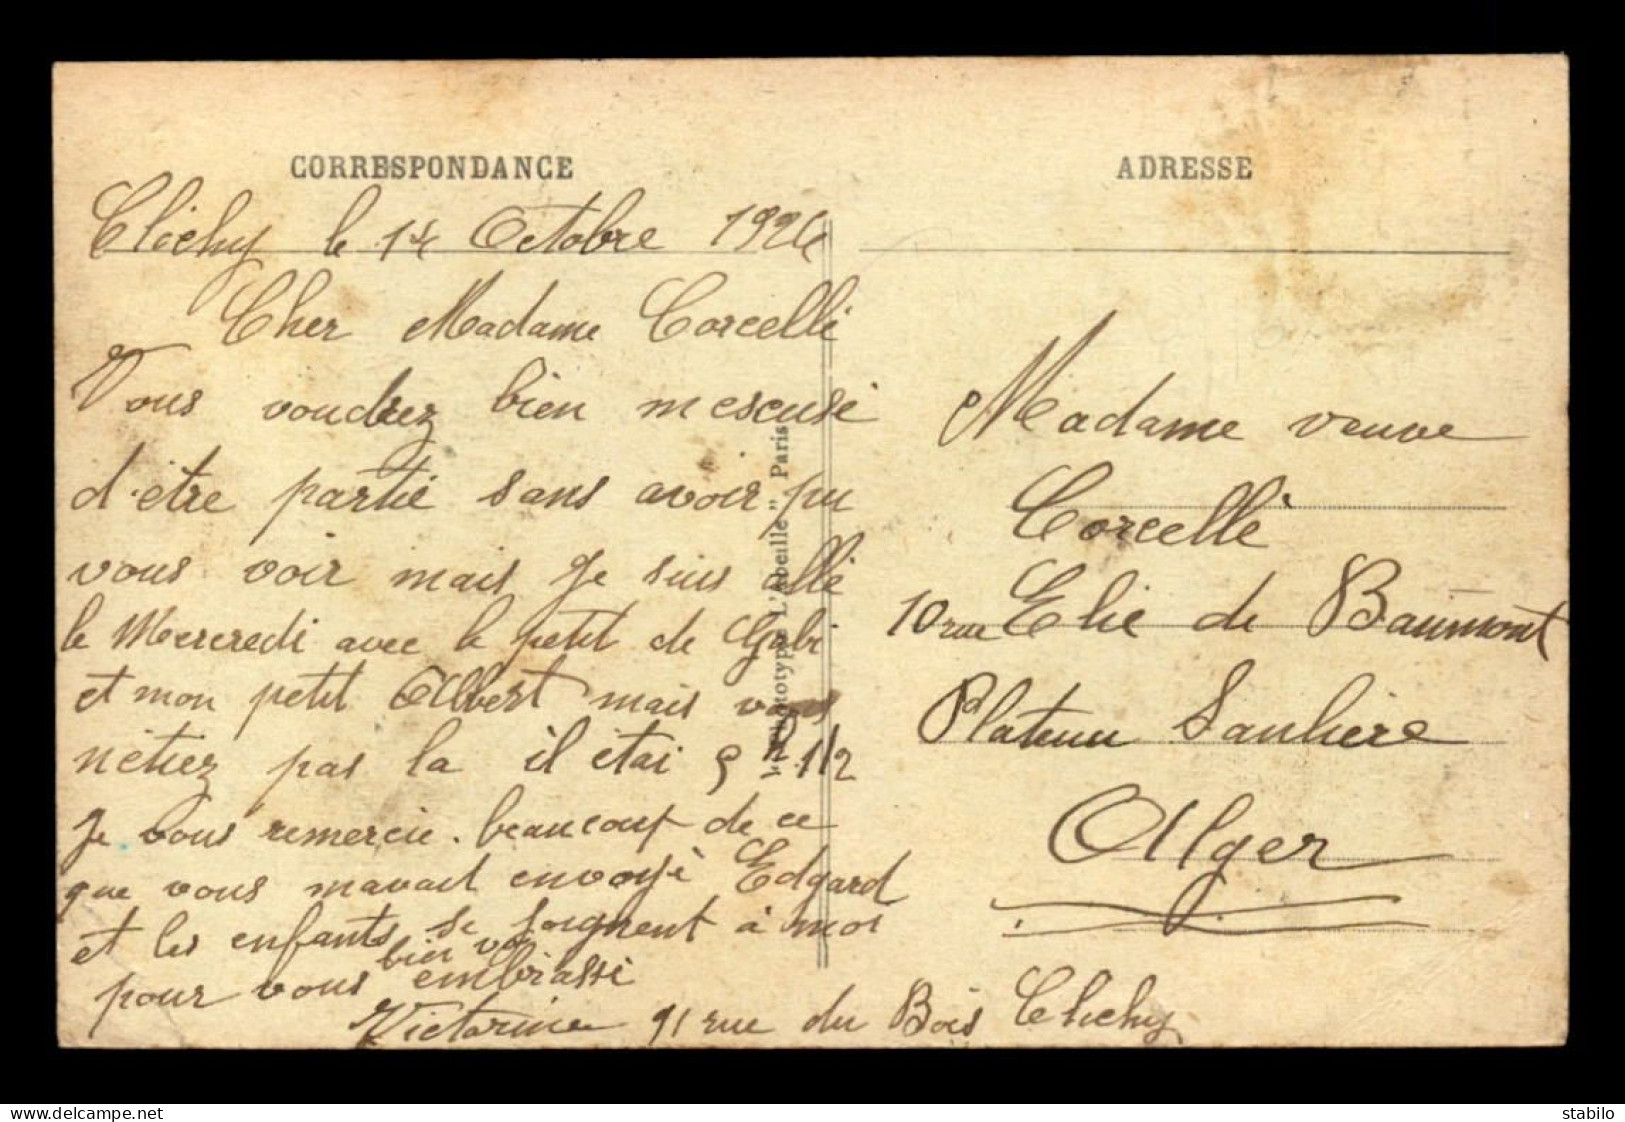 CORRESPONDANCE
Clichy le 14 Octobre 1924
Cher Madame Corcelle
Vous voudrez bien mescusé
d'être partie sans avoir pu
vous voir mais Je suis allé
le Mercredi avec le petit de Gabi
et mon petit Albert mais vous
n'étiez pas la il étai 5 h 1/2
Je vous remercie. beaucoup de ce
que vous mavait envoyé Edgard
et les enfants se joignent à moi
pour vous bien embrassé
Victorine 91 rue du Bois Clichy
L'Abeille" Paris
ADRESSE
Madame veuve
Corcelle
10 rue Elie de Baumont
Plateau Saulière
Alger
stabilo